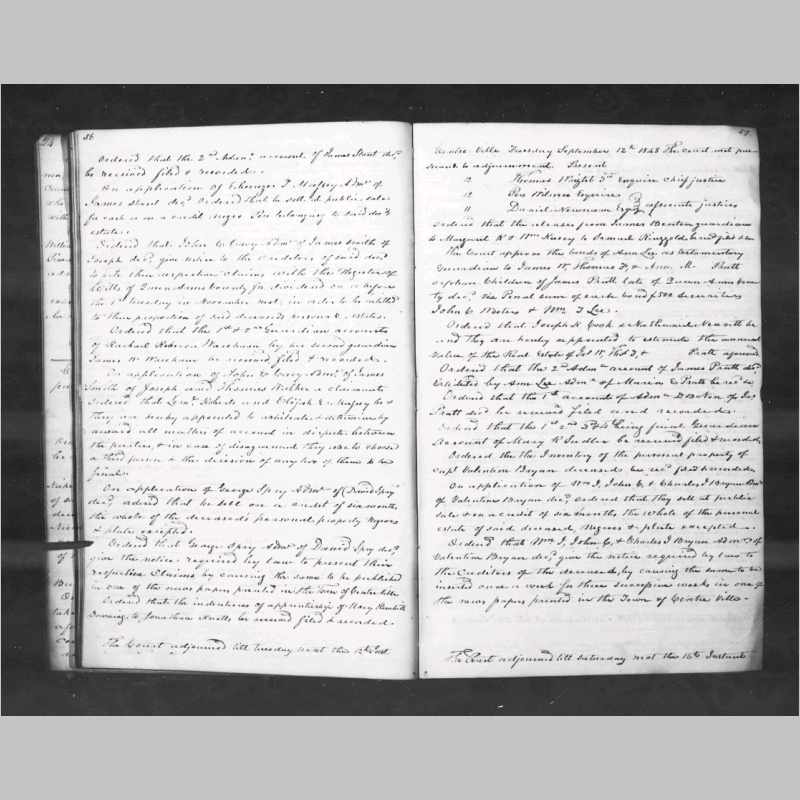 86
Ordered that the 2nd Admn. account of James Stunt decd.
be received filed & recorded.
On application of Ebenezer T. Massey Admr. of
James Stunt decd. Ordered that he sell at public sale
for cash or on a credit negro belonging to said decd.
estate.
Ordered that John C. Ewry Admr. of James Smith of
Joseph decd. give notice to the creditors of said decd.
their respective claims with the Register of
Wills of Queen Anns County for dividend on or before
the 1st tuesday in November next, in order to be entitled
to their proportion of said deceaseds estate.
Ordered that the 1st & 2nd Guardian accounts
of Rachael Rebecca Workman by her second guardian
James W. Workman be received filed & recorded.
On application of John C. Ewry Admr. of James
Smith of Joseph and Thomas a claimant
Ordered that Roberts and Elijah E. Massey be &
they are hereby appointed to arbitrate & determine by
award all matters of account in dispute between
the parties, & in case of disagreement they are to choose
a third person & the decision of any two of them to be
final.
On application of George Spry Admr. of David Spry
decd. ordered that he sell on a credit of six months
the whole of the deceased's personal property Negroes
& plate excepted.
Ordered that George Spry Admr. of David Spry decd.
give the notice required by law to present their
respective Claims by causing the same to be published
in one of the news papers printed in the Town of Centre Ville.
Ordered that the indentures of apprenticeship of Mary Elizabeth
Downing to Jonathan Knotts be received filed & recorded.
The Court adjourned till tuesday next the 12th Inst
87
Centre Ville Tuesday September 12th 1848 The Court met pur
suant to adjournment Present
12 Thomas Wright 3rd Esquire chief justice
12 Pere Wilmer Esquire
11 Daniel Newnam Esqr. associate justices
Ordered that the releases from James Benton guardian
to Margaret K & Wm. to Samuel Ringgold be recd filed & rec
The Court approve the bonds of Ann Lee as testamentary
Guardian to James W, Thomas F, & Ann M. Pratt
orphan Children of James Pratt late of Queen Anns Coun
ty decd. the Penal sum of each bond $500 Securities
John C Waters & Wm. T Lee.
Ordered that Joseph N. Cook & Nathaniel be
and they are hereby appointed to estimate the annual
value of the Real Estate of Jas W, Thos F, & Pratt aforesaid
Ordered that the 2nd Admn account of James Pratt decd
exhibited by Ann Lee Admx. of Pratt be rec. &c.
Ordered that the 1st accounts of Admn. D B Non of Jas
Pratt decd be received filed and recorded.
Ordered that the 1st 2nd 3rd & 4th being final Guardian
Account of Mary R Sudler be received filed & recorded
Ordered the the Inventory of the personal property of
Capt. Valentine Bryan deceased be recd filed & recorded
On application of Wm I, John C, & Charles I Bryan Admrs
of Valentine Bryan decd, ordered that they sell at public
sale & on a credit of six months the whole of the personal
estate of said deceased, Negroes & plate excepted.
Ordered that Wm I, John C, & Charles I Bryan Admrs of
Valentine Bryan decd, give the notice required by law to
the Creditors of the deceased, by causing the same to be
inserted once a week for three successive weeks in one of
the news papers printed in the Town of Centre Ville.
The Court adjourned till Saturday next the 16th Instant